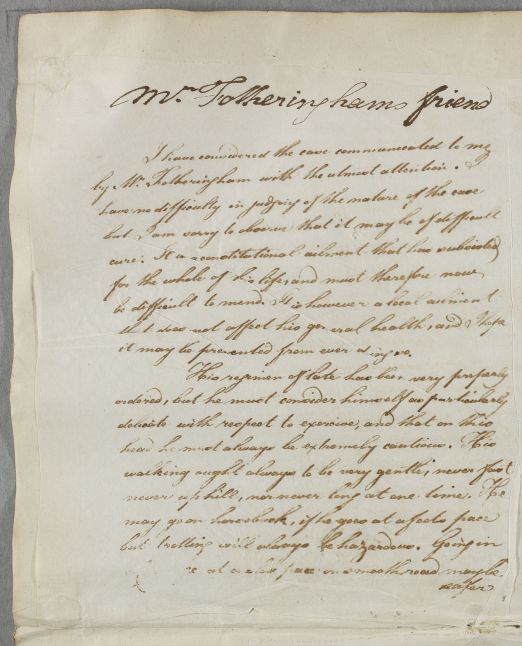 Mr. Fotheringhams friend
I have considered the case communicated to me
by Mr. Fotheringham with the utmost attention. I
have no difficulty in judging of the nature of the case
but I am sorry to observe that it may be of difficult
cure. It is a constitutional ailment that has subsisted
for the whole of his life, and must therefore now
be difficult to mend. It is however a local ailment
that does not affect his general health, and I hope
it may be prevented from ever doing so.
His regimen of late has been very properly
ordered, but he must consider himself as particularly
delicate with respect to exercise, and that on this
head he must always be extremely cautious. His
walking ought always to be very gentle, never fast
never up hill, nor never long at one time. He
may go on horseback, if he goes at a foots pace
but trotting will always be hazardous. Going in
at a slow pace on smooth road may be
safer